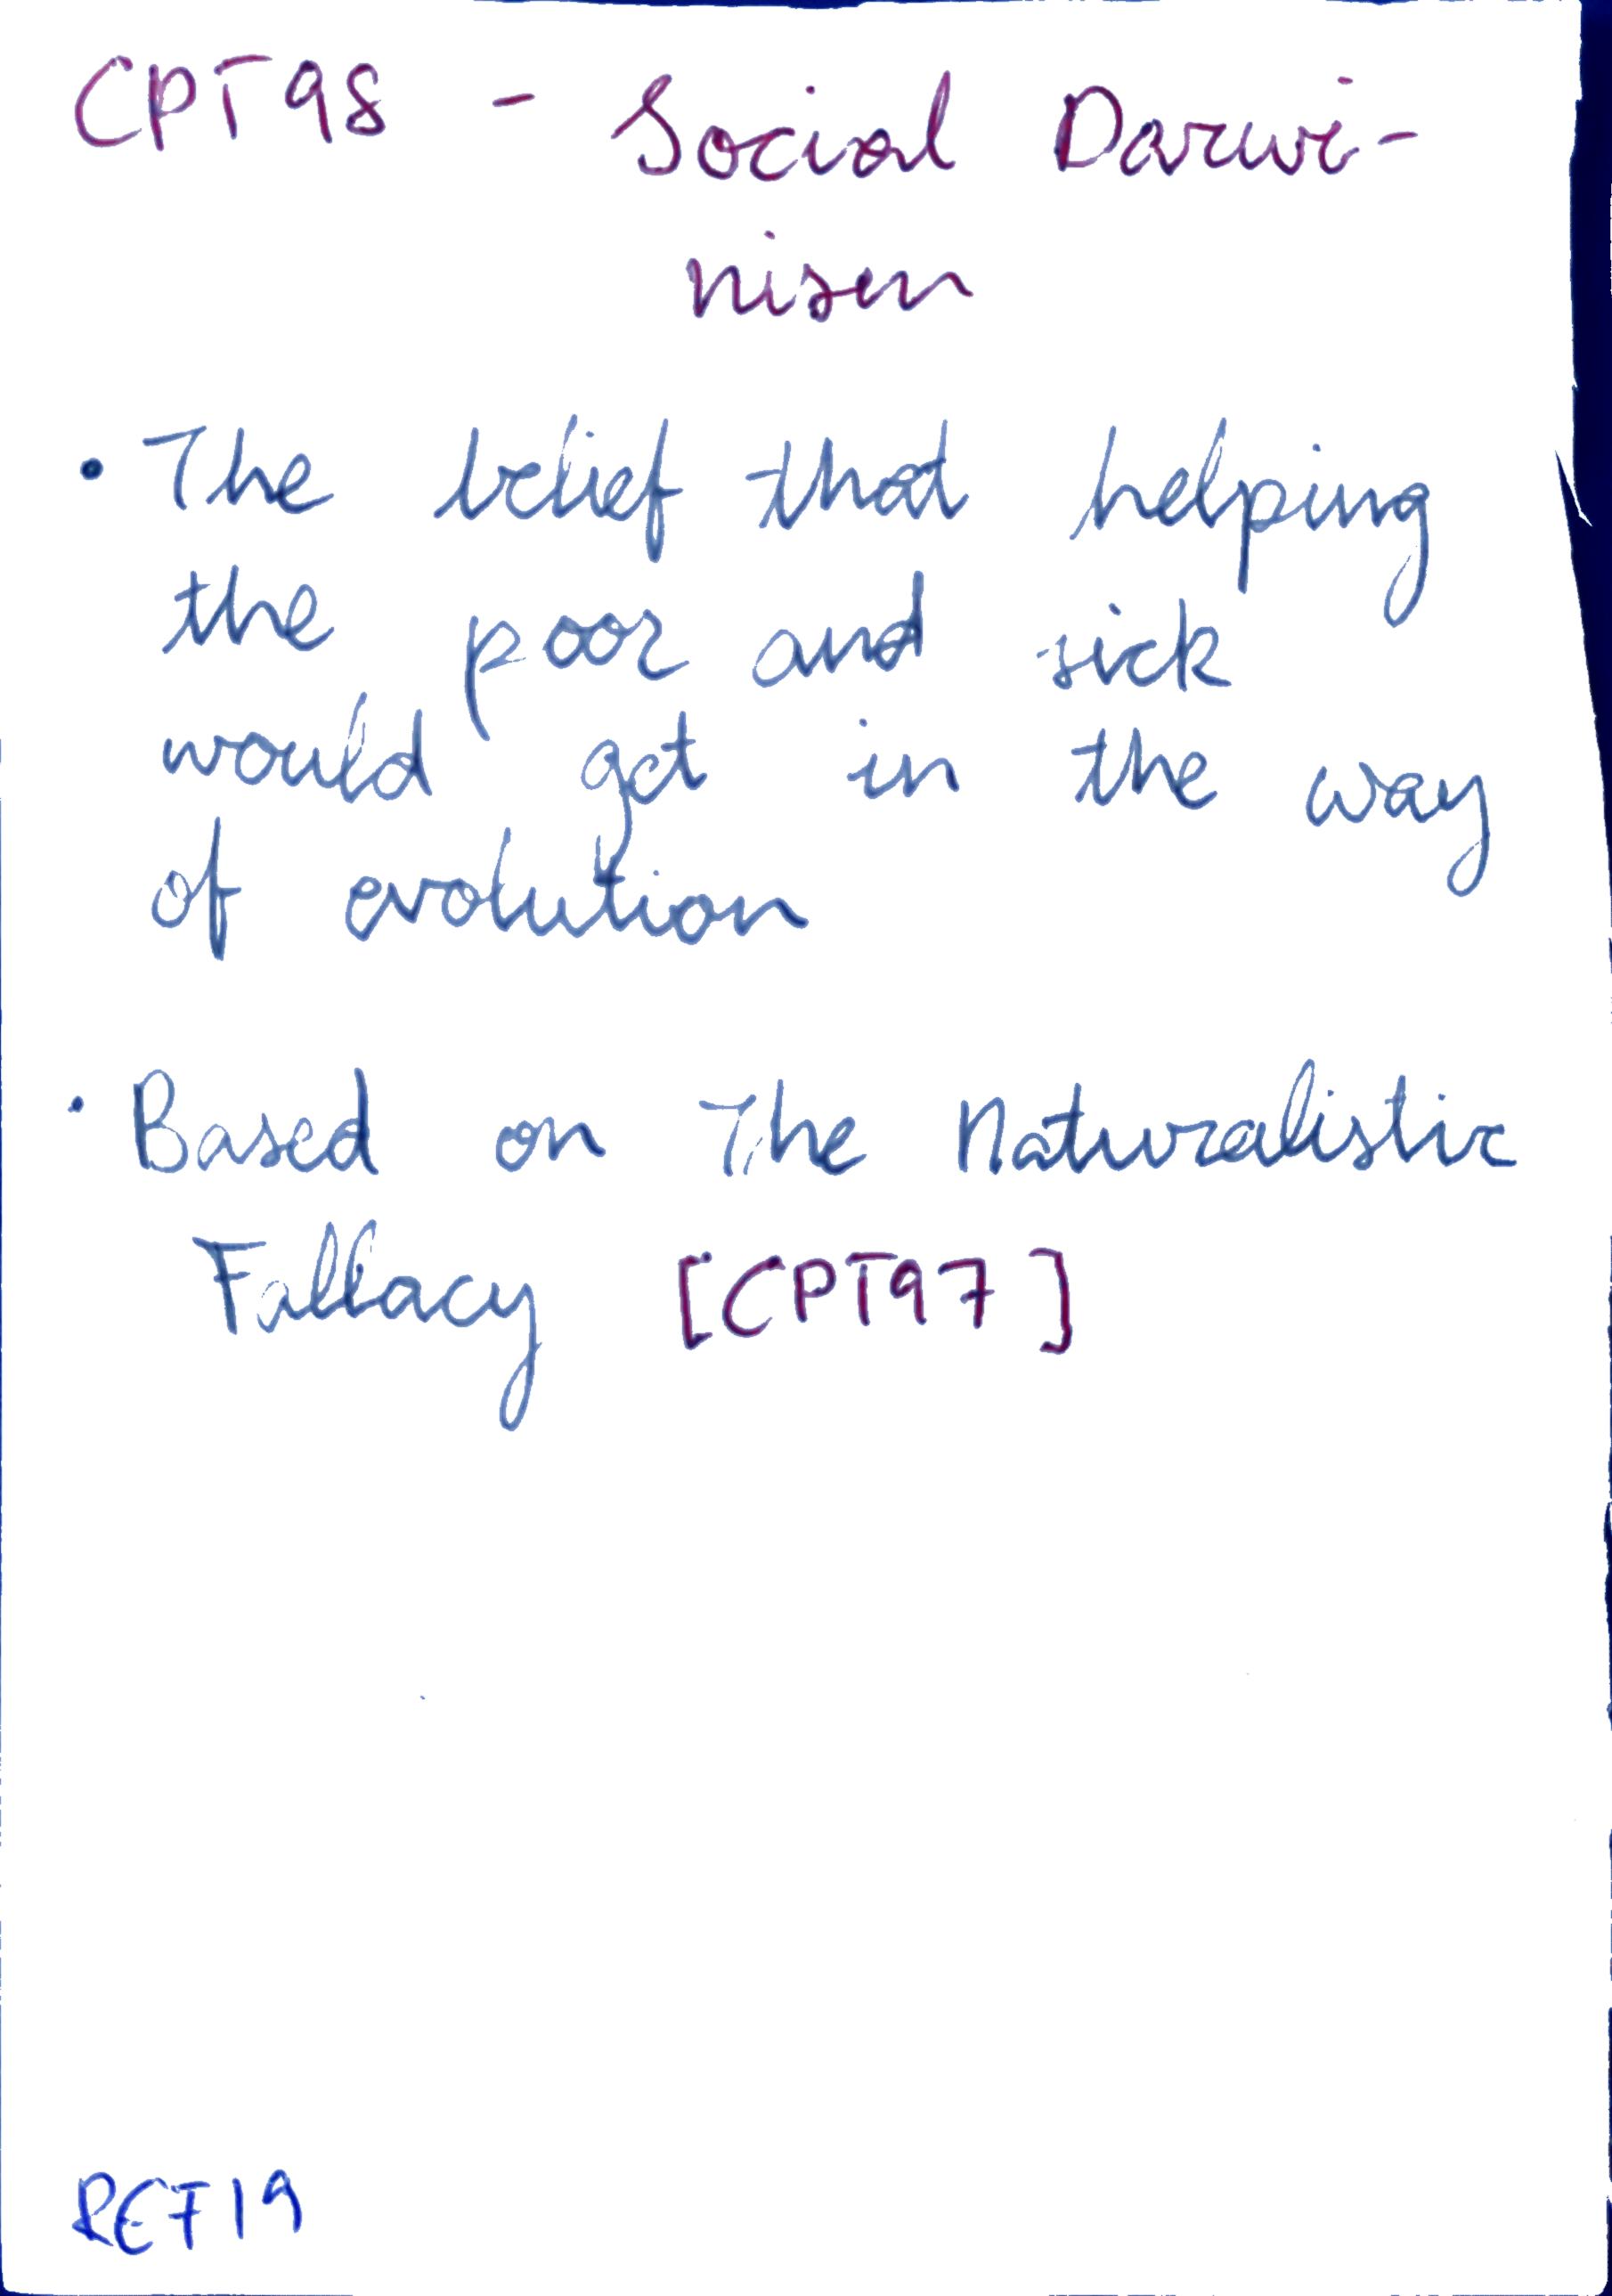 CPT98 - Social Darwi-
nism
• The belief that helping
the poor and sick
would get in the way
of evolution
• Based on The Naturalistic
Fallacy [CPT97]
REF19